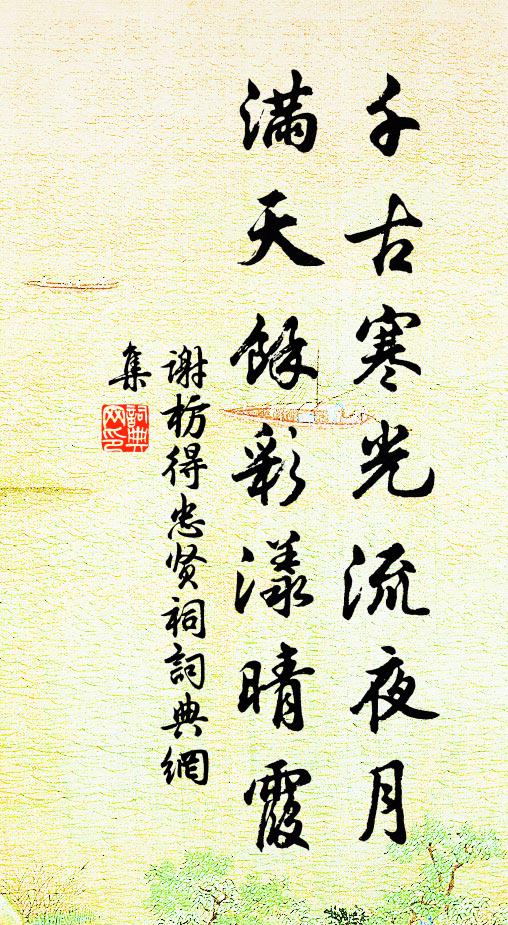 千古寒光流夜月
滿天餘彩漾晴霞
谢枋得忠贤祠詞典網
集
詞典
网印